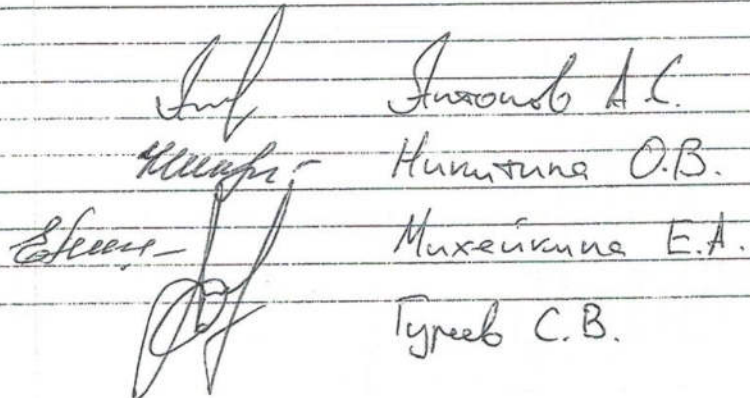 Антонов А.С.
Никитина О.В.
Михейкина Е.А.
Гуреев С.В.